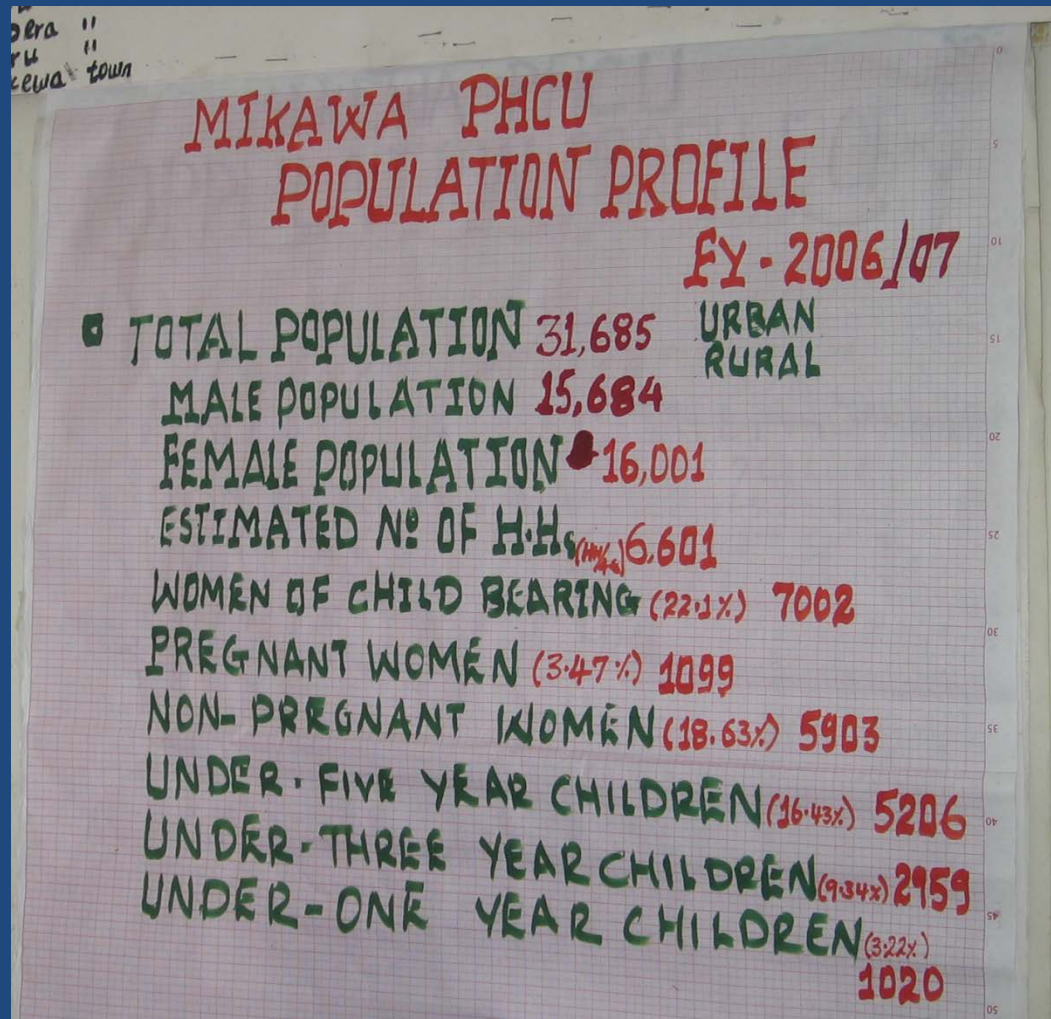 "
"
town
MIKAWA PHCU
POPULATION PROFILE
FY - 2006/07
TOTAL POPULATION 31,685 URBAN
RURAL
MALE POPULATION 15,684
FEMALE POPULATION 16,001
ESTIMATED Nº OF H.Hs 6,601
WOMEN OF CHILD BEARING (22.1%) 7002
PREGNANT WOMEN (3.47%) 1099
NON-PREGNANT WOMEN (18.63%) 5903
UNDER-FIVE YEAR CHILDREN (16.43%) 5206
UNDER-THREE YEAR CHILDREN (9.34%) 2959
UNDER-ONE YEAR CHILDREN (3.22%)
1020
0
5
10
15
20
25
30
35
40
45
50